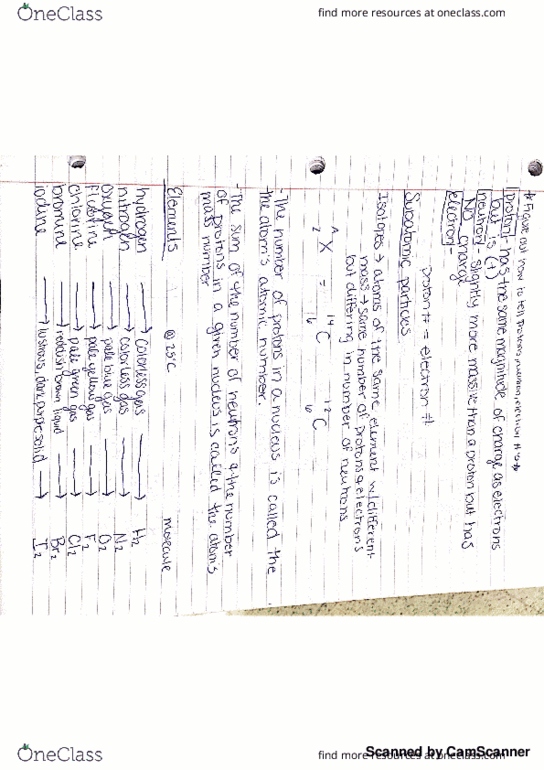 OneClass
find more resources at oneclass.com
* Figure out how to tell protons, neutron, electron #'s
proton - has the same magnitude of charge as electrons
but is (+)
neutron - slightly more massive than a proton but has
NO charge
electron -
proton # = electron #
Subatomic particles
Isotopes → atoms of the same element w/ different
mass → same number of protons & electrons
but differing in number of neutrons
A X = 14 C 12 C
Z 6 6
- The number of protons in a nucleus is called the
the atom's atomic number.
- The sum of the number of neutrons & the number
of protons in a given nucleus is called the atom's
mass number
Elements @ 25°C molecule
hydrogen → colorless gas → H2
nitrogen → colorless gas → N2
oxygen → pale blue gas → O2
fluorine → pale yellow gas → F2
chlorine → pale green gas → Cl2
bromine → reddish brown liquid → Br2
iodine → lustrous, dark purple solid → I2
OneClass
find more resources at oneclass.com
Scanned by CamScanner